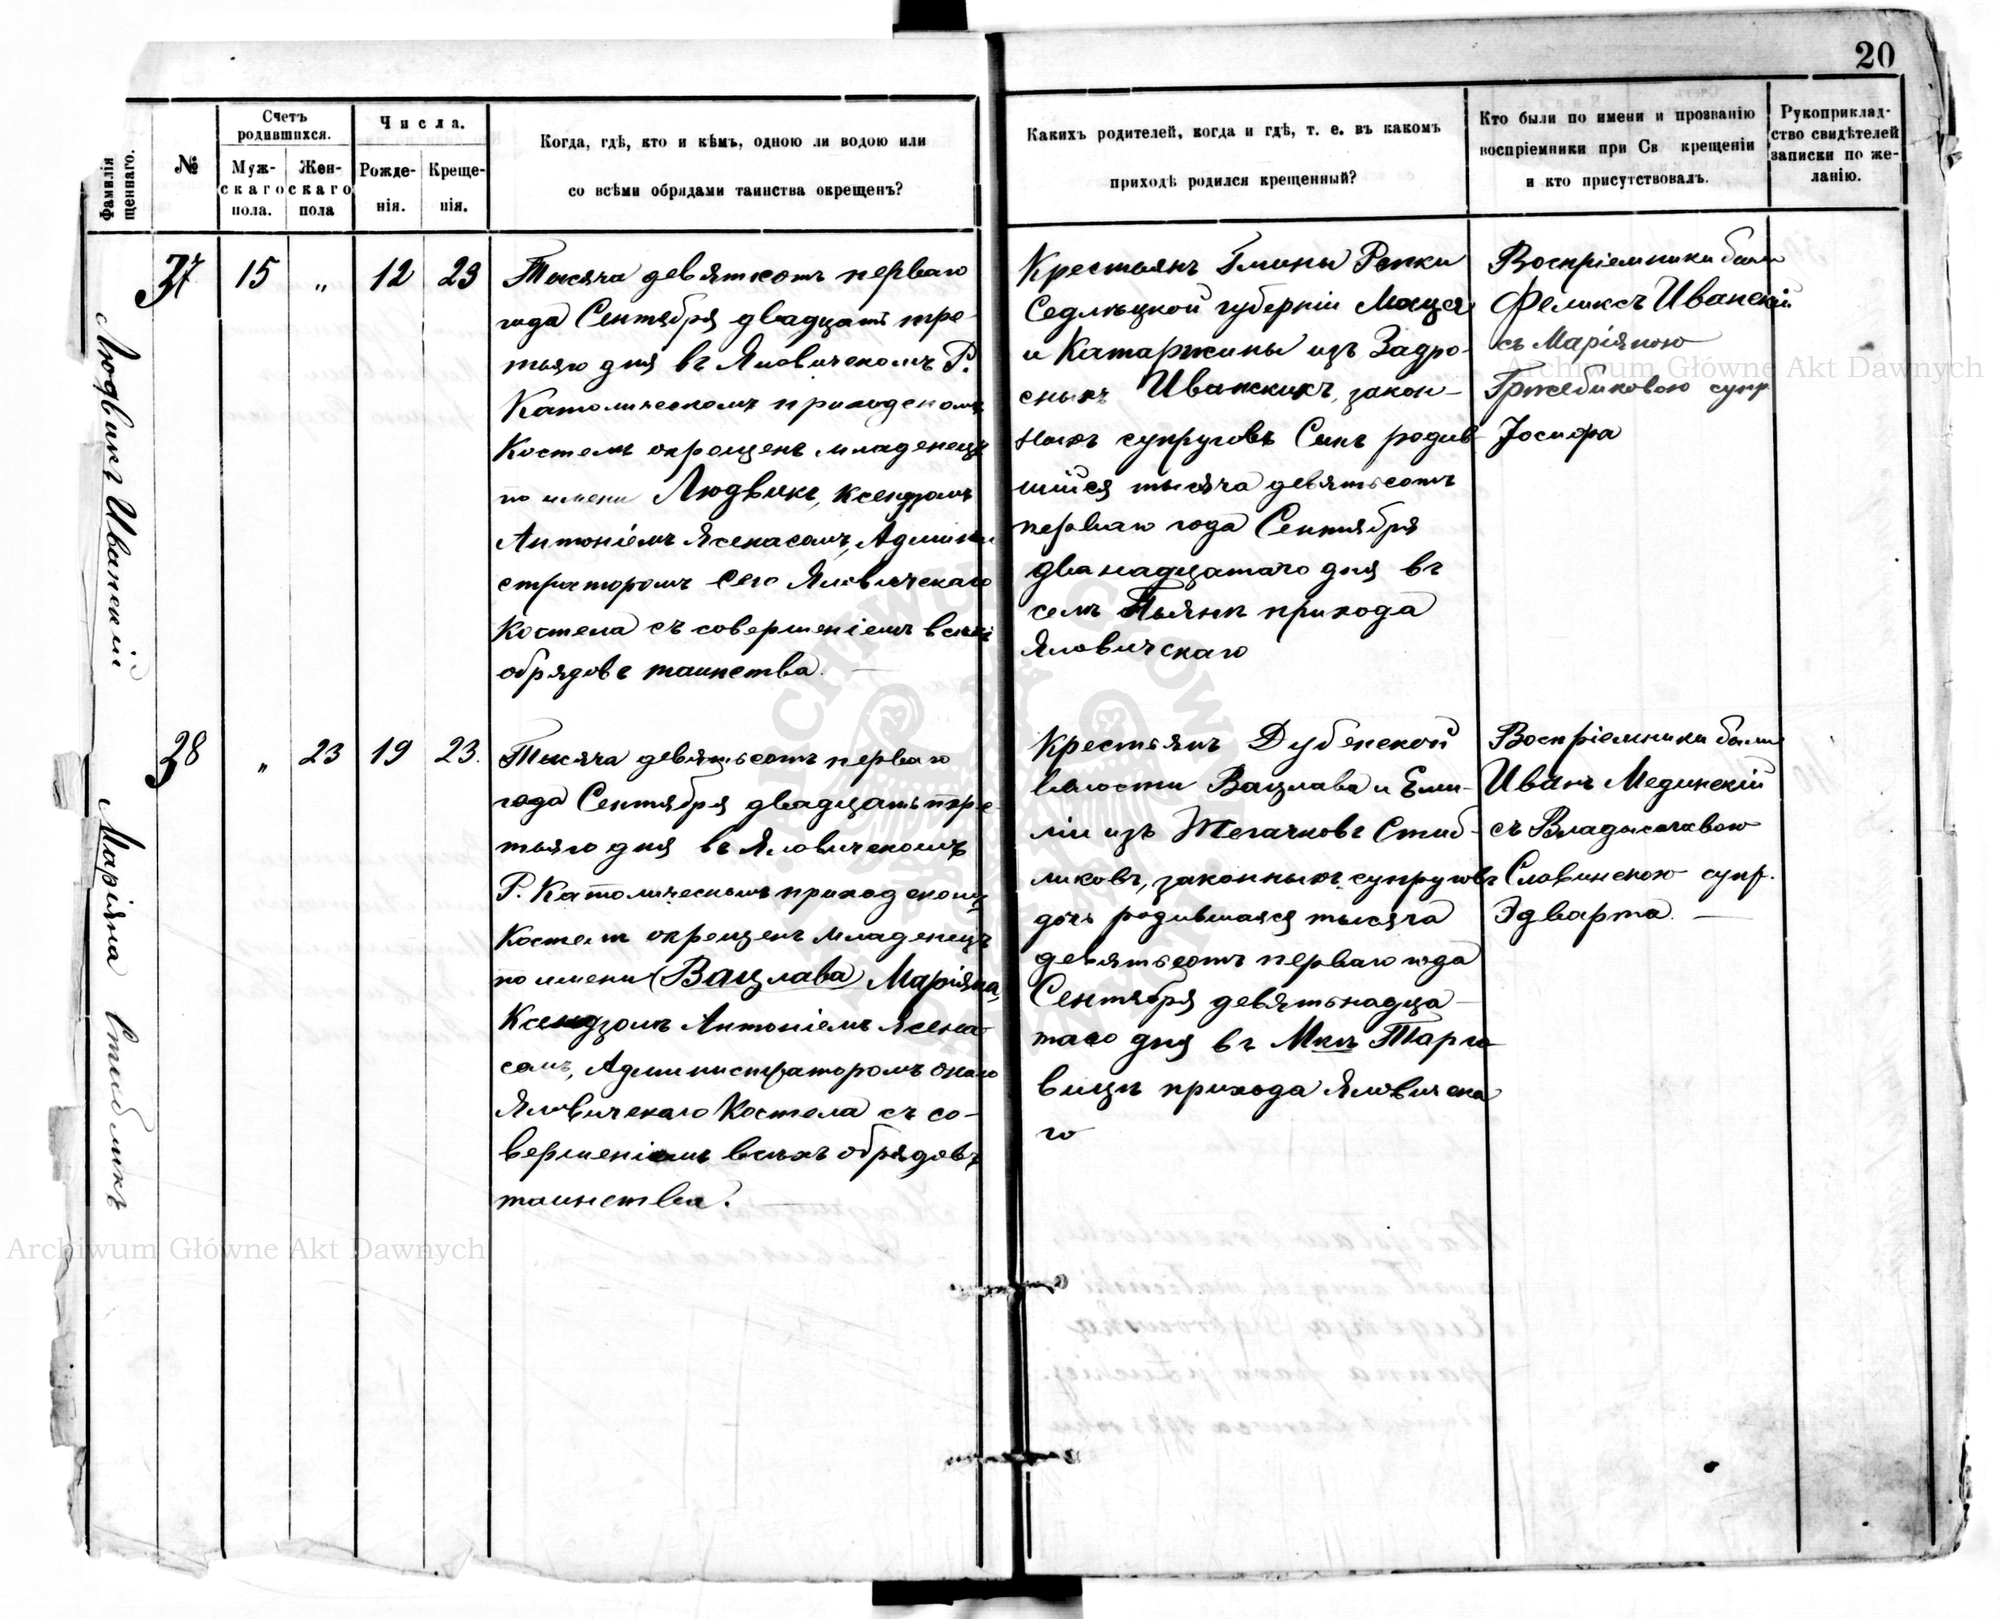 20
Фамилія
щеннаго.
№
Счетъ
родившихся.
Муж-
скаго
пола.
Жен-
скаго
пола
Числа.
Рожде-
нія.
Креще-
нія.
Когда, гдѣ, кто и кѣмъ, одною ли водою или
со всѣми обрядами таинства окрещенъ?
Какихъ родителей, когда и гдѣ, т. е. въ какомъ
приходѣ родился крещенный?
Кто были по имени и прозванію
воспріемники при Св крещеніи
и кто присутствовалъ.
Рукоприклад-
ство свидѣтелей
записки по же-
ланію.
Людвикъ Иванскій
37
15
"
12
23
Тысяча девятсотъ перваго
года Сентября двадцать тре-
тьяго дня въ Яловичскомъ Р.
Католическомъ приходскомъ
Костелѣ окрещенъ младенецъ
по имени Людвикъ, Ксендзомъ
Антоніемъ Ясенасомъ, Админи
страторомъ сего Яловичскаго
Костела съ совершеніемъ всѣхъ
обрядовъ таинства. —
Крестьянъ Гмины Репки
Седлѣцкой губерніи Мацея
и Катаржины изъ Задро-
сныхъ Иванскихъ, закон-
ныхъ супруговъ Сынъ родив
шійся тысяча девятьсотъ
перваго года Сентября
дванадцатаго дня въ
селѣ Пьянѣ прихода
Яловичскаго
Воспріемники были
Феликсъ Иванскій
съ Маріяною
Гржебиковою супр
Іосифа
Маріяна Стибликъ
38
"
23
19
23.
Тысяча девятьсотъ перваго
года Сентября двадцать тре-
тьяго дня въ Яловичскомъ
Р. Католическомъ приходскомъ
Костелѣ окрещенъ младенецъ
по имени (Вацлава) Маріяна,
Ксендзомъ Антоніемъ Ясена-
сомъ, Администраторомъ онаго
Яловичскаго Костела съ со-
вершеніемъ всѣхъ обрядовъ
таинства.
Крестьянъ Дубенской
волости Вацлава и Еми-
ліи изъ Жегачковъ Стиб-
ликовъ, законныхъ супруговъ
дочь родившаяся тысяча
девятьсотъ перваго года
Сентября девятьнадца-
таго дня въ Мкѣ Торго
вицѣ прихода Яловичска
го
Воспріемники были
Иванъ Мединскій
съ Владыславою
Славинскою супр.
Эдварта. —
Archiwum Główne Akt Dawnych
Archiwum Główne Akt Dawnych